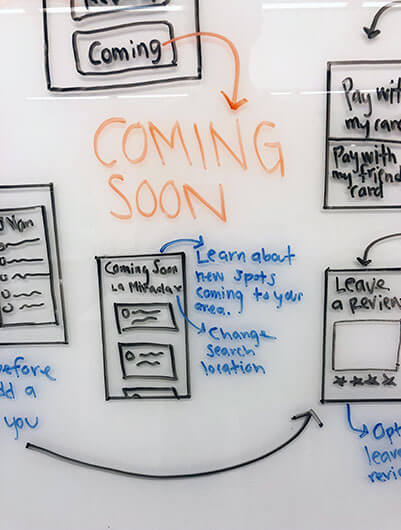 Coming
COMING
SOON
Pay with
my card
Pay with
my friend
card
Coming Soon
La Mirada
Learn about
new spots
coming to your
area.
Change
search
location
Leave
a Review
before
a
you
Opt
leav
revi